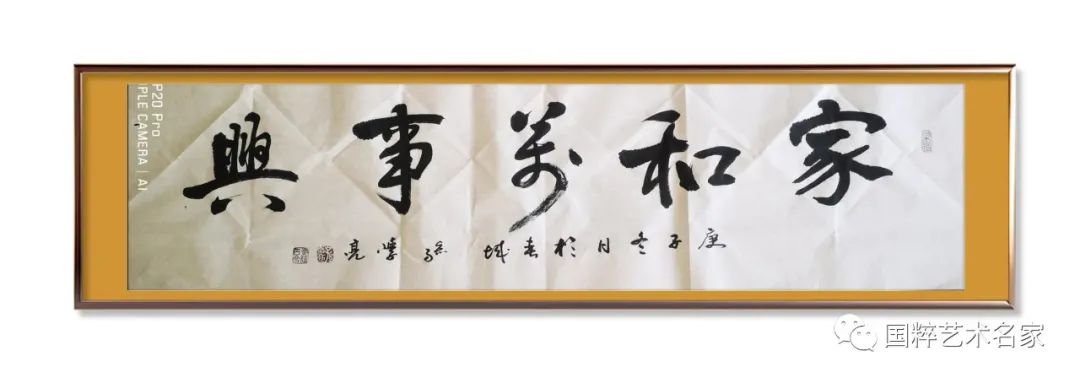 家和萬事興
庚子冬月於春城 亮
P20 Pro
PLE CAMERA | AI
国粹艺术名家